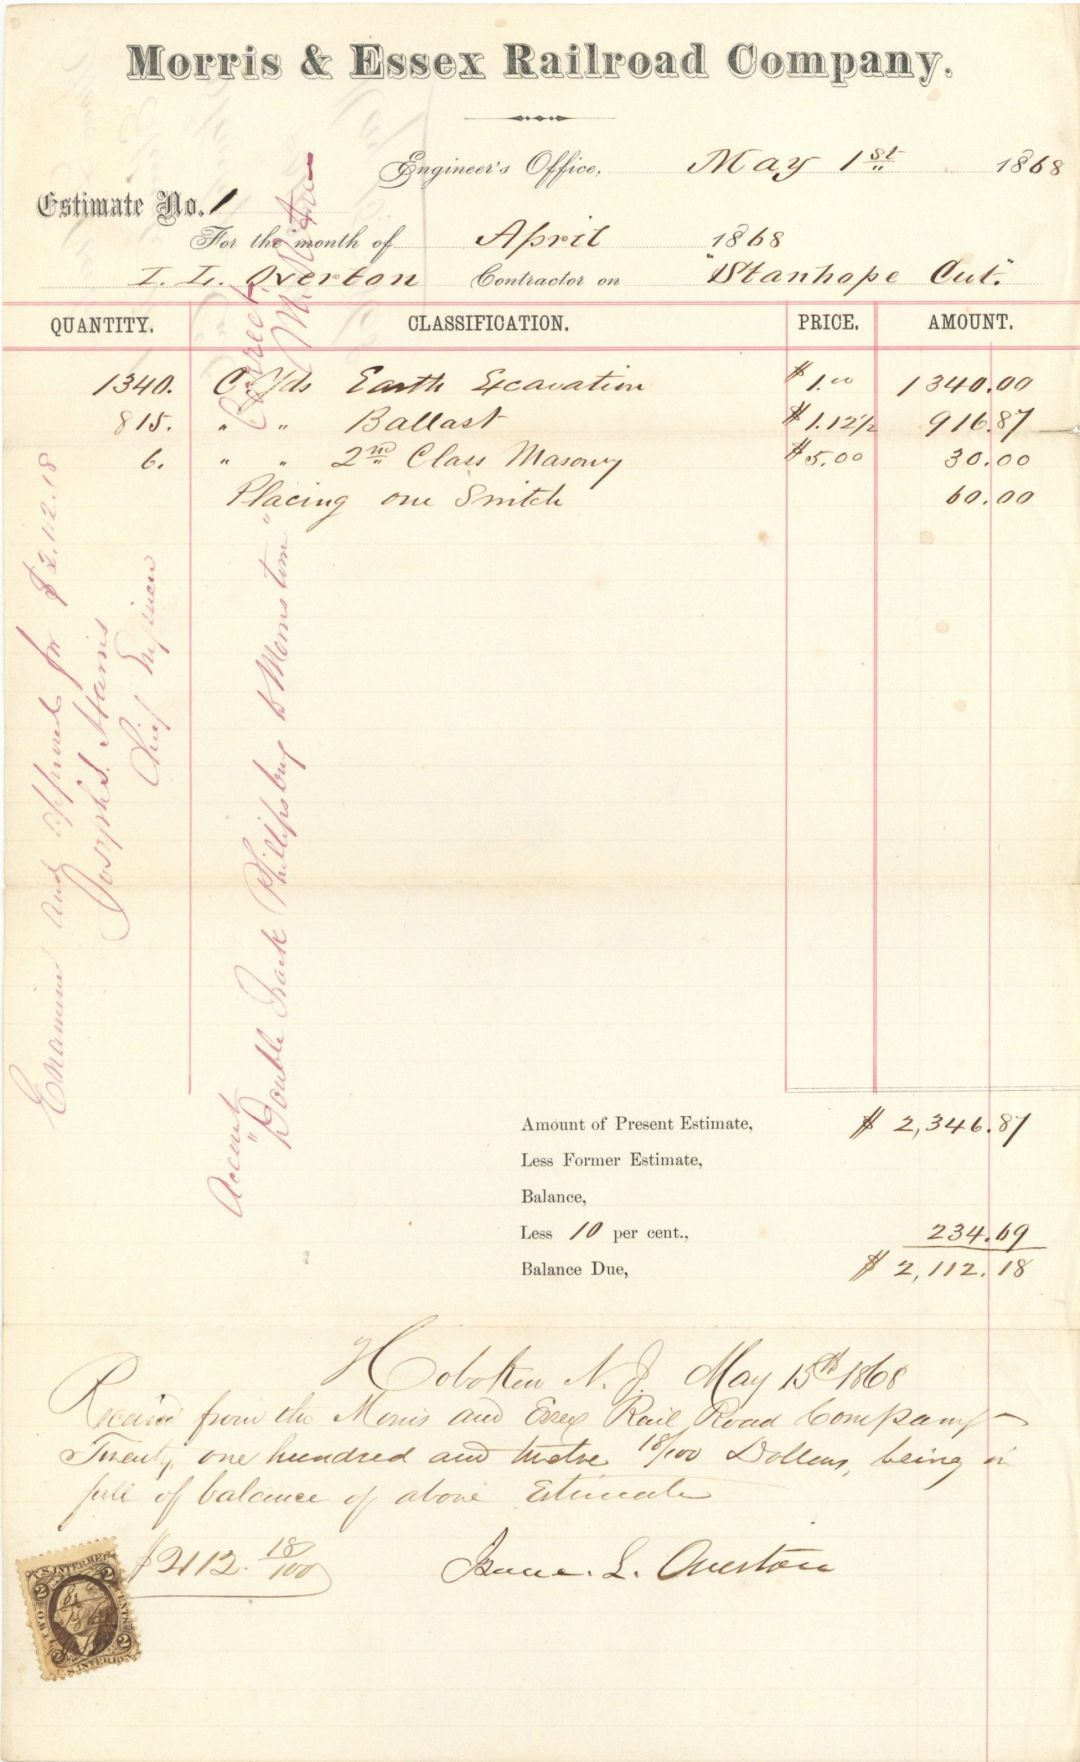 Morris & Essex Railroad Company.
Engineer's Office, May 1st 1868
Estimate No. 1
For the month of April 1868
I. L. Overton Contractor on "Stanhope Cut."
QUANTITY. CLASSIFICATION. PRICE. AMOUNT.
1340. C. Yds Earth Excavation $1.00 1340.00
815. " " Ballast $1.12½ 916.87
6. " " 2nd Class Masonry $5.00 30.00
Placing one Switch 60.00
Correct
Examined and approved for $2.112.18
Joseph S. Harris
Chief Engineer
Account
"Double Track Phillipsburg to Morristown"
Amount of Present Estimate, $ 2,346.87
Less Former Estimate,
Balance,
Less 10 per cent., 234.69
Balance Due, $ 2,112.18
Hoboken N. J. May 15th 1868
Received from the Morris and Essex Rail Road Company
Twenty one hundred and twelve 18/100 Dollars, being in
full of balance of above Estimate
$2112. 18/100
Isaac L. Overton
U.S. INTER. REV.
2 2
TWO CENTS
2 2
U.S. INTER. REV.